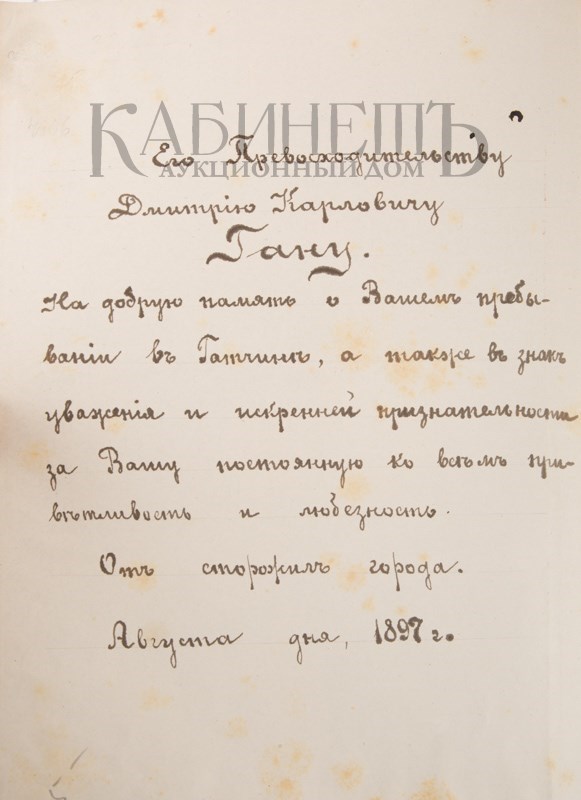 КАБИНЕТЪ
АУКЦИОННЫЙ ДОМ
Его Превосходительству
Дмитрію Карловичу
Гану.
На добрую память о Вашемъ пребы-
ваніи въ Гатчинѣ, а также въ знакъ
уваженія и искренней признательности
за Вашу постоянную ко всѣмъ при-
вѣтливость и любезность.
Отъ сторожилъ города.
Августа дня, 1897 г.